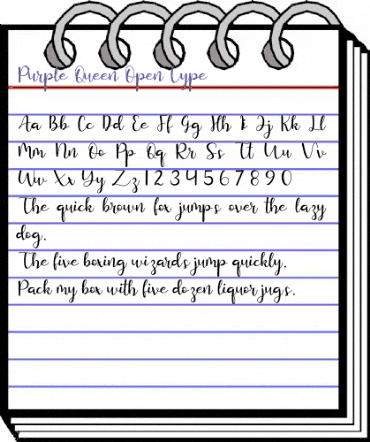 Purple Queen Open Type
Aa Bb Cc Dd Ee Ff Gg Hh Ii Jj Kk Ll
Mm Nn Oo Pp Qq Rr Ss Tt Uu Vv
Ww Xx Yy Zz 1 2 3 4 5 6 7 8 9 0
The quick brown fox jumps over the lazy
dog.
The five boxing wizards jump quickly.
Pack my box with five dozen liquor jugs.